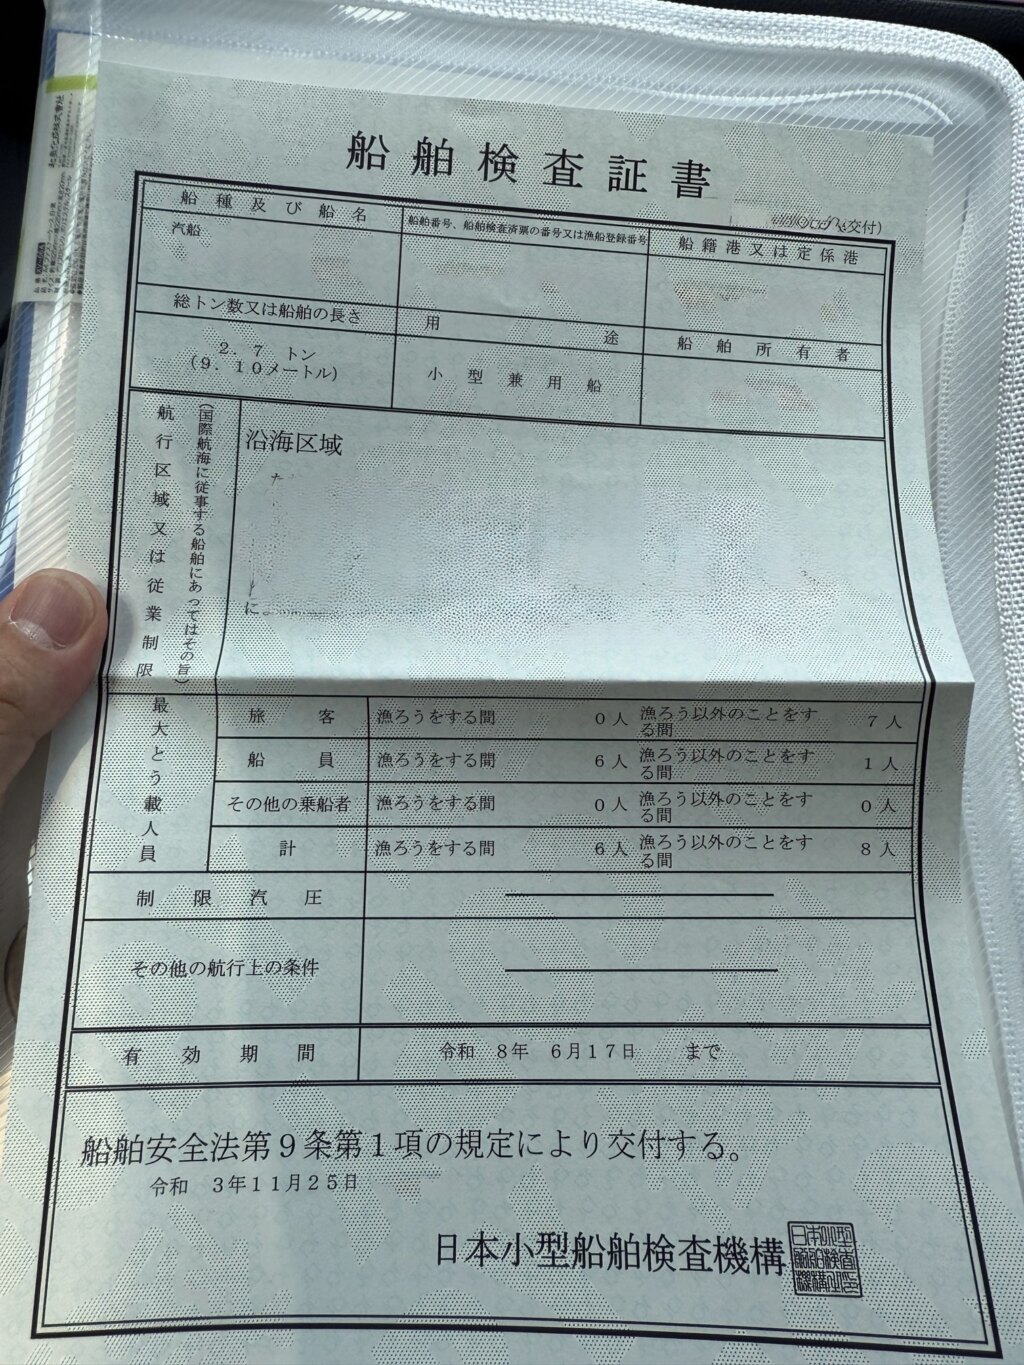 船舶検査証書
(交付)
船種及び船名
船舶番号、船舶検査済票の番号又は漁船登録番号
船籍港又は定係港
汽船
総トン数又は船舶の長さ
用途
船舶所有者
2.7 トン
(9.10メートル)
小型兼用船
航行区域又は従業制限
(国際航海に従事する船舶にあってはその旨)
沿海区域
た
に
最大とう載人員
旅客
漁ろうをする間
0人
漁ろう以外のことをする間
7人
船員
漁ろうをする間
6人
漁ろう以外のことをする間
1人
その他の乗船者
漁ろうをする間
0人
漁ろう以外のことをする間
0人
計
漁ろうをする間
6人
漁ろう以外のことをする間
8人
制限汽圧
その他の航行上の条件
有効期間
令和 8年 6月17日 まで
船舶安全法第9条第1項の規定により交付する。
令和 3年11月25日
日本小型船舶検査機構